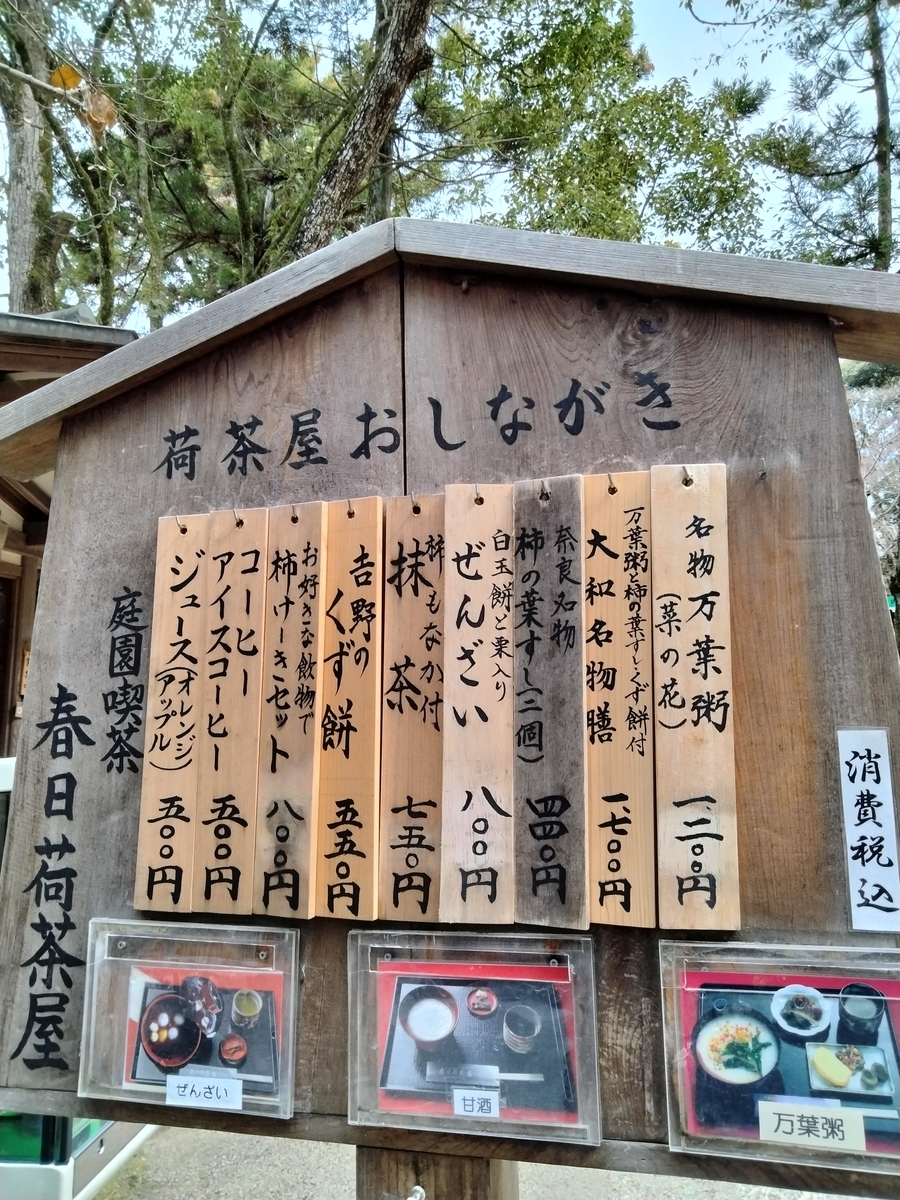 荷茶屋おしながき
名物万葉粥
(菜の花)
一、二〇〇円
万葉粥と柿の葉すし、くず餅付
大和名物膳
一、七〇〇円
奈良名物
柿の葉すし(三個)
四四〇円
白玉餅と栗入り
ぜんざい
八〇〇円
柿もなか付
抹茶
七五〇円
吉野の
くず餅
五五〇円
お好きな飲物で
柿けーきセット
八〇〇円
コーヒー
アイスコーヒー
五〇〇円
ジュース(オレンジ
アップル)
五〇〇円
庭園喫茶
春日荷茶屋
消費税込
ぜんざい
甘酒
万葉粥